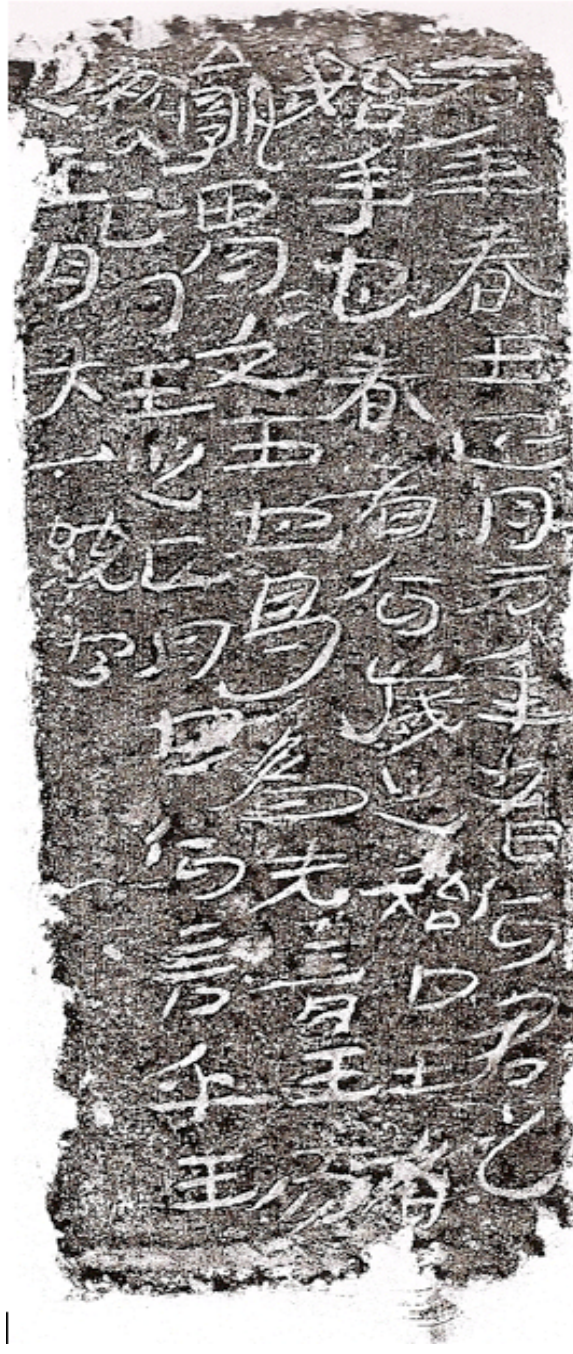 元年春王正月元年者何君之
始年也春者何歲之始也王者
孰胃胃文王也曷為先言王而
後正月王之正月也何言乎王
正月大一統也